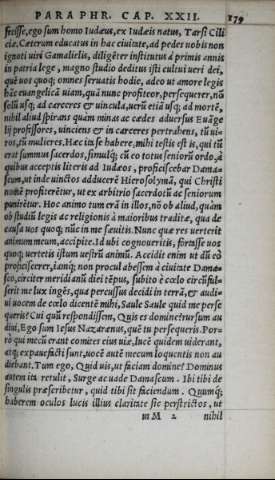 PARAPHR. CAP. XXII. 179
fuisse, ego sum homo Iudæus, ex Iudæis natus, Tarsi Cili
ciæ. Cæterum educatus in hac ciuitate, ad pedes nobis non
ignoti uiri Gamalielis, diligẽter institutus à primis annis
in patria lege, magno studio deditus isti cultui ueri dei,
quẽ uos quoqɜ omnes seruatis hodie, adeo ut amore legis
hãc euangelicã uiam, quã nunc profiteor, persequerer, nõ
solũ usqɜ ad carceres & uincula, uerũ etiã usqɜ ad mortẽ,
nihil aliud spirans quàm minas ac cædes aduersus Euãge
lij professores, uinciens & in carceres pertrahens, tũ ui-
ros, tũ mulieres. Hæc ita se habere, mihi testis est is, qui tũ
erat summus sacerdos, simulqɜ cũ eo totus seniorũ ordo, à
quibus acceptis literis ad Iudæos, proficiscebar Dama-
scum, ut inde uinctos adducerẽ Hierosolymã, qui Christi
nomẽ profiterẽtur, ut ex arbitrio sacerdotũ ac seniorum
punirẽtur. Hoc animo tum erã in illos, nõ ob aliud, quàm
ob studiũ legis ac religionis à maioribus traditæ, qua de
causa uos quoqɜ nũc in me sæuitis. Nunc quæ res uerterit
animum meum, accipite. Id ubi cognoueritis, fortasse uos
quoqɜ uertetis istum uestrũ animũ. Accidit enim ut dũ eò
proficiscerer, iamqɜ non procul abessem à ciuitate Dama-
sco, circiter meridianũ diei tẽpus, subito è cœlo circũful-
serit me lux ingẽs, qua percussus decidi in terrã, & audi-
ui uocem de cœlo dicentẽ mihi, Saule Saule quid me perse
queris? Cui quũ respondissem, Quis es domine? rursum au
diui, Ego sum Iesus Nazarenus, quẽ tu persequeris. Por-
rò qui mecũ erant comites eius uiæ, lucẽ quidem uiderant,
atqɜ expauefacti sunt, uocẽ autẽ mecum loquentis non au
diebant. Tum ego, Quid uis, ut faciam domine? Dominus
autem ita retulit, Surge ac uade Damascum. Ibi tibi de
singulis præscribetur, quid tibi sit faciendum. Quumqɜ
haberem oculos lucis illius claritate sic perstrictos, ut
M 2 nihil